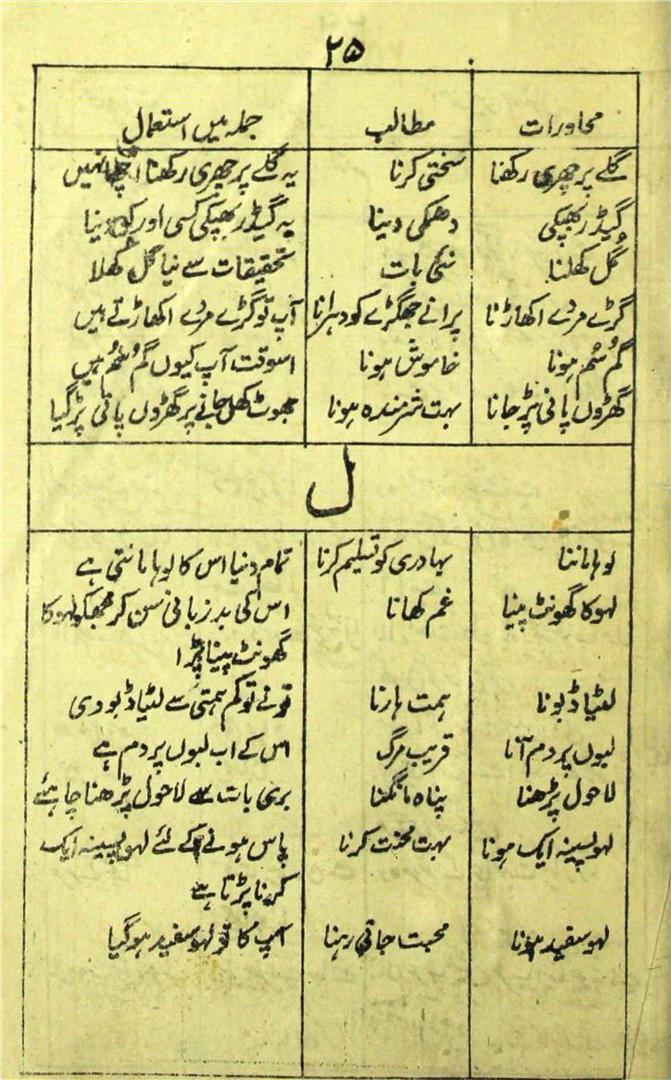 ۲۵
محاورات مطالب جملہ میں استعمال
گلے پر چھری رکھنا سختی کرنا یہ گلے پر چھری رکھنا اچھا نہیں
گیڈر بھپکی دھمکی دینا یہ گیڈر بھپکی کسی اور کو دینا
گُل کھلنا نئی بات تحقیقات سے نیا گل کھلا
گڑے مردے اکھاڑنا پرانے جھگڑے کو دہرانا آپ تو گڑے مردے اکھاڑتے ہیں
گم سُم ہونا خاموش ہونا اسوقت آپ کیوں گم سُم ہیں
گھڑوں پانی پڑ جانا بہت شرمندہ ہونا جھوٹ کھل جانے پر گھڑوں پانی پڑ گیا
ل
لوہا ماننا بہادری کو تسلیم کرنا تمام دنیا اس کا لوہا مانتی ہے
لہو کا گھونٹ پینا غم کھانا اس کی بد زبانی سن کر مجھکو لہو کا
گھونٹ پینا پڑا
لٹیا ڈبونا ہمت ہارنا تونے تو کم ہمتی سے لٹیا ڈبو دی
لبوں پر دم آنا قریب مرگ اس کے اب لبوں پر دم ہے
لاحول پڑھنا پناہ مانگنا بری بات سے لاحول پڑھنا چاہئے
لہو پسینہ ایک ہونا بہت محنت کرنا پاس ہونے کے لئے لہو پسینہ ایک
کرنا پڑتا ہے
لہو سفید ہونا محبت جاتی رہنا آپ کا تو لہو سفید ہو گیا